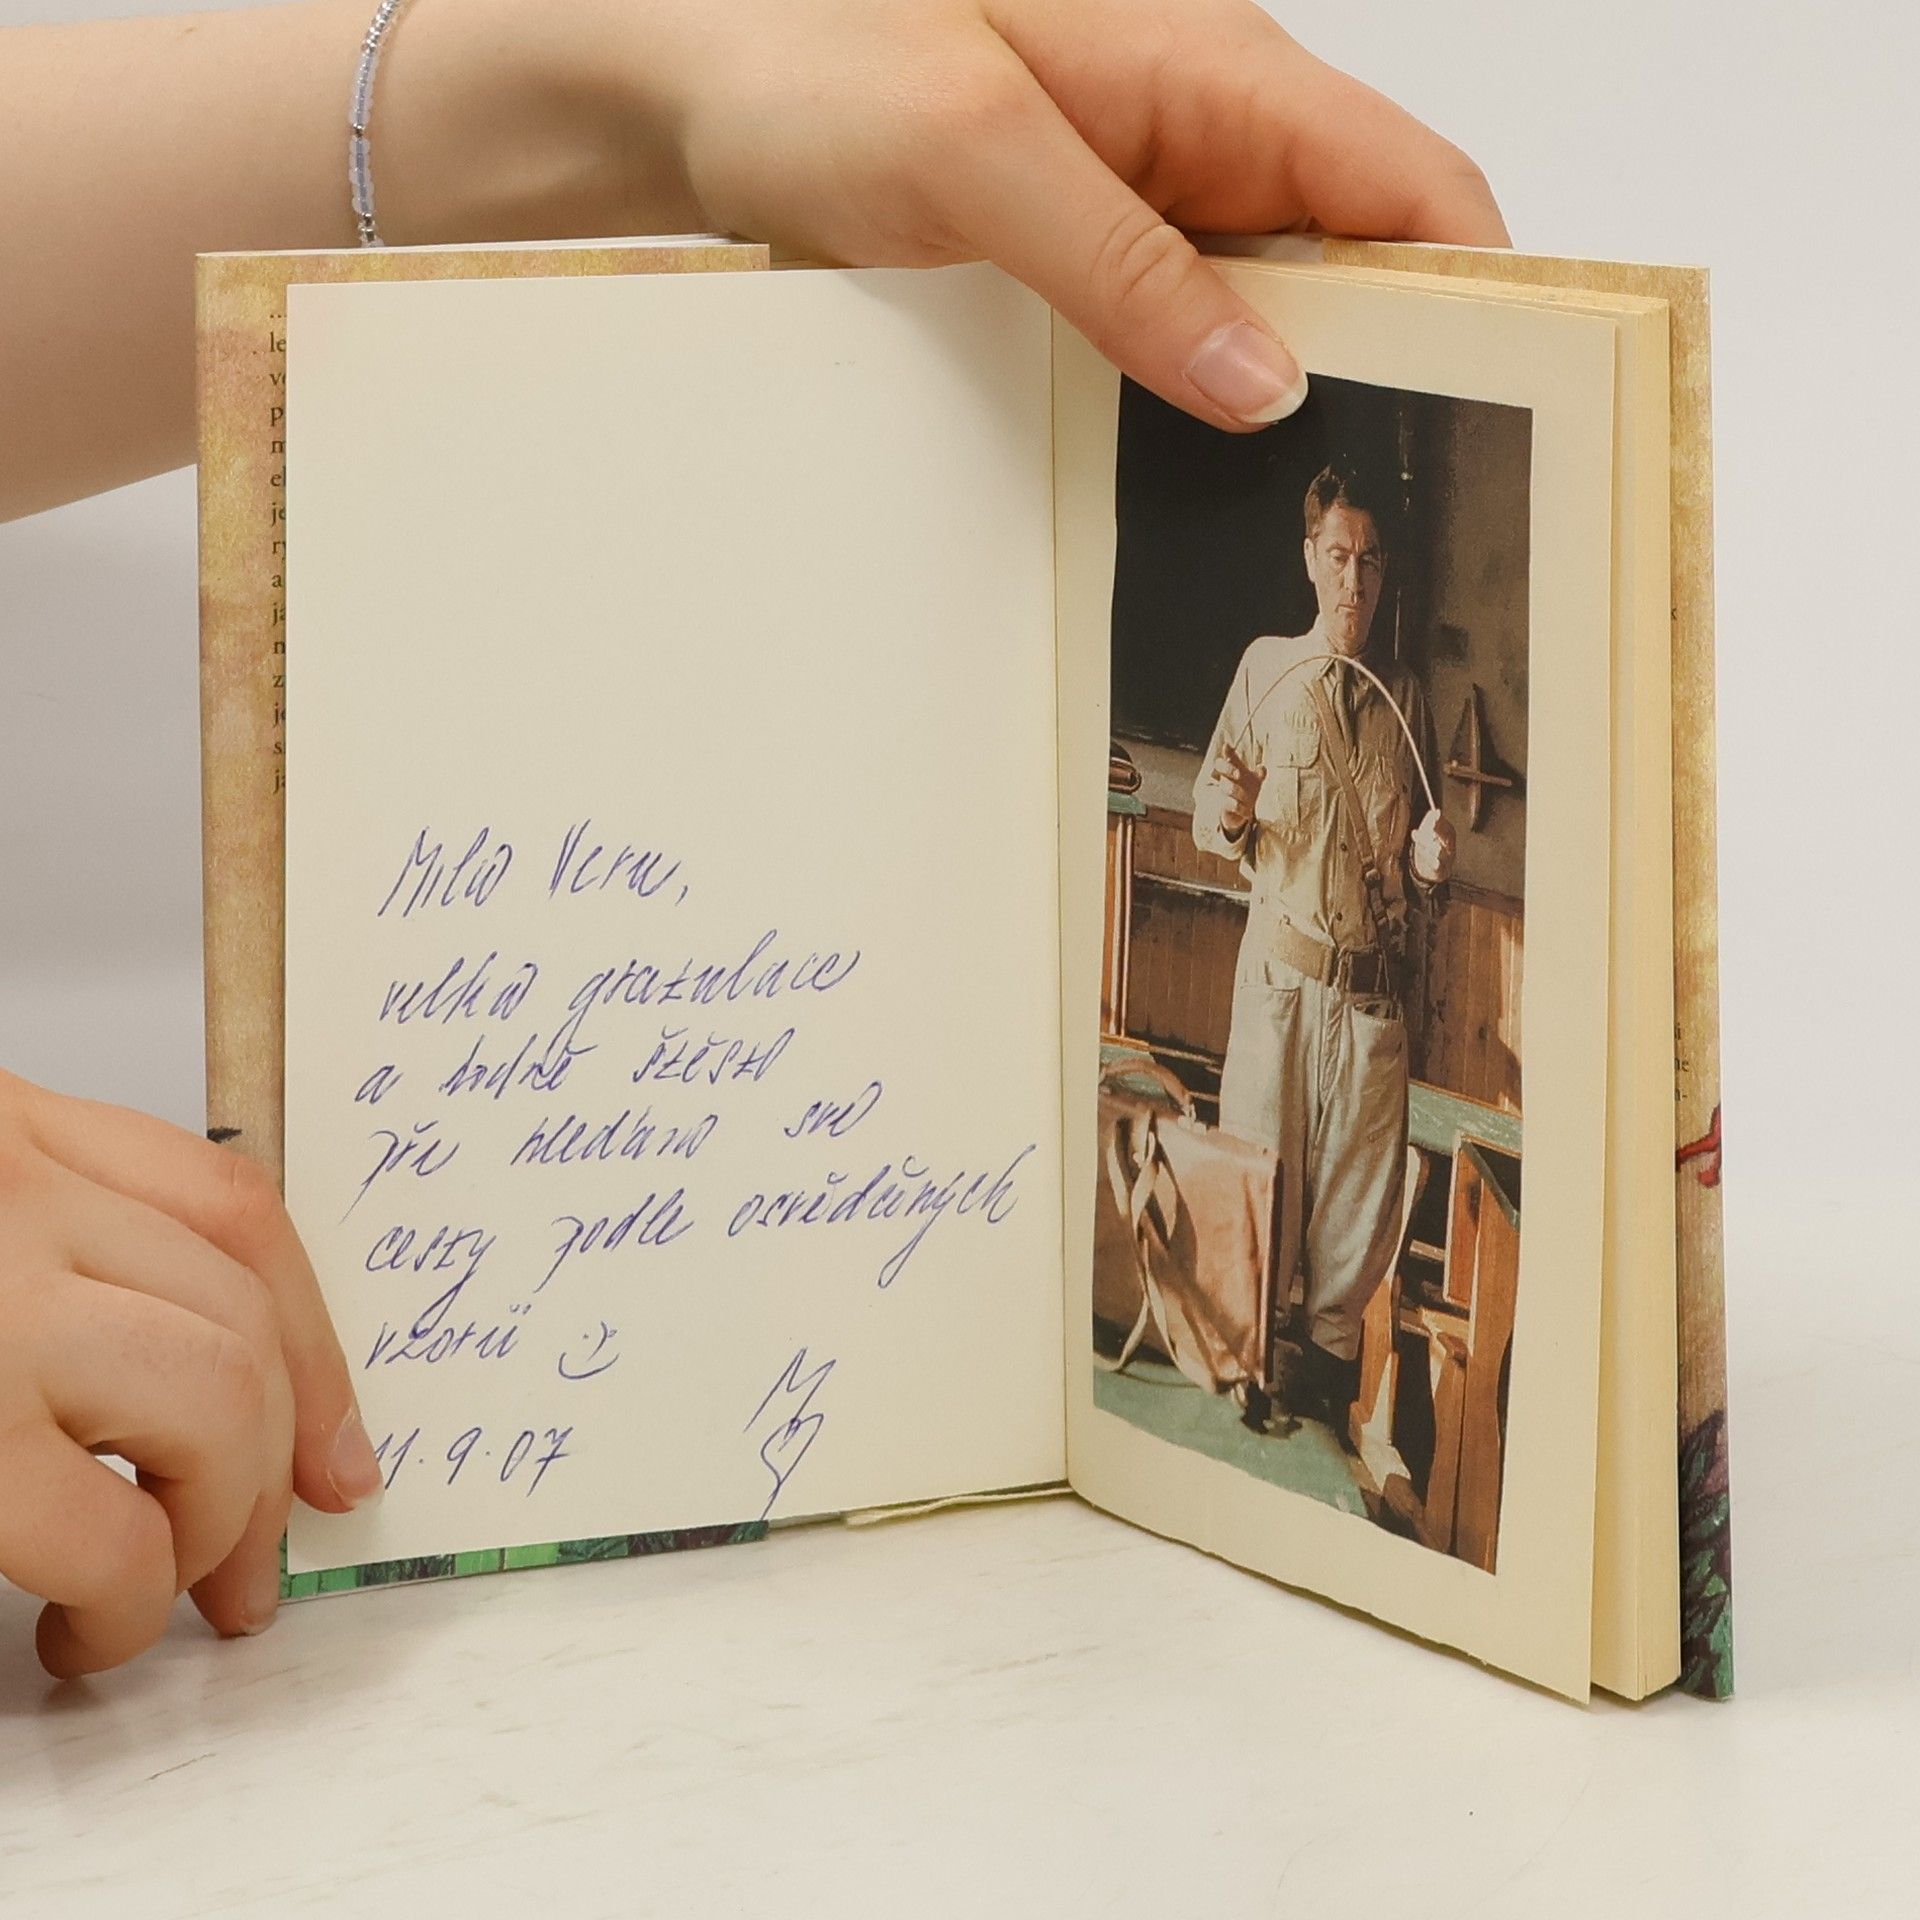 Milá Veru,
velká gratulace
a hodně štěstí
při hledání své
cesty podle osvědčených
vzorů :)
11.9.07
M